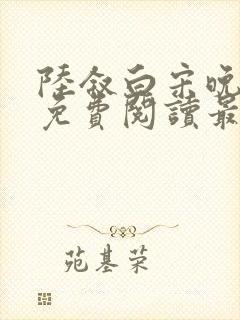 陸敘白宋晚
免費閱讀最
苑基荣